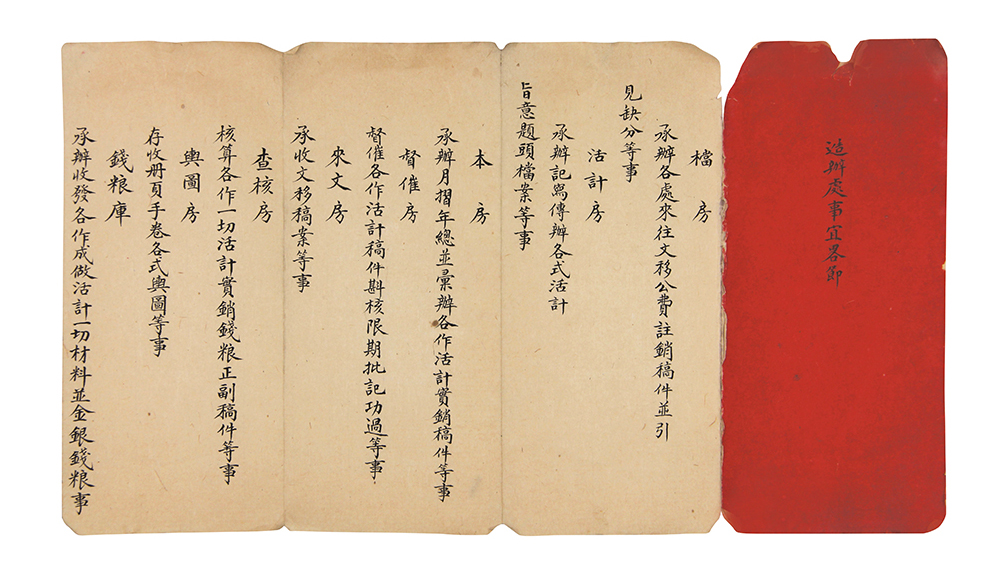 造辦處事宜畧節
檔房
承辦各處來往文移公費註銷稿件並引
見缺分等事
活計房
承辦記寫傳辦各式活計
旨意題頭檔案等事
本房
承辦月摺年總並彙辦各作活計實銷稿件等事
督催房
督催各作活計稿件斟核限期批記功過等事
來文房
承收文移稿案等事
查核房
核算各作一切活計實銷錢粮正副稿件等事
輿圖房
存收册頁手卷各式輿圖等事
錢粮庫
承辦收發各作成做活計一切材料並金銀錢粮事